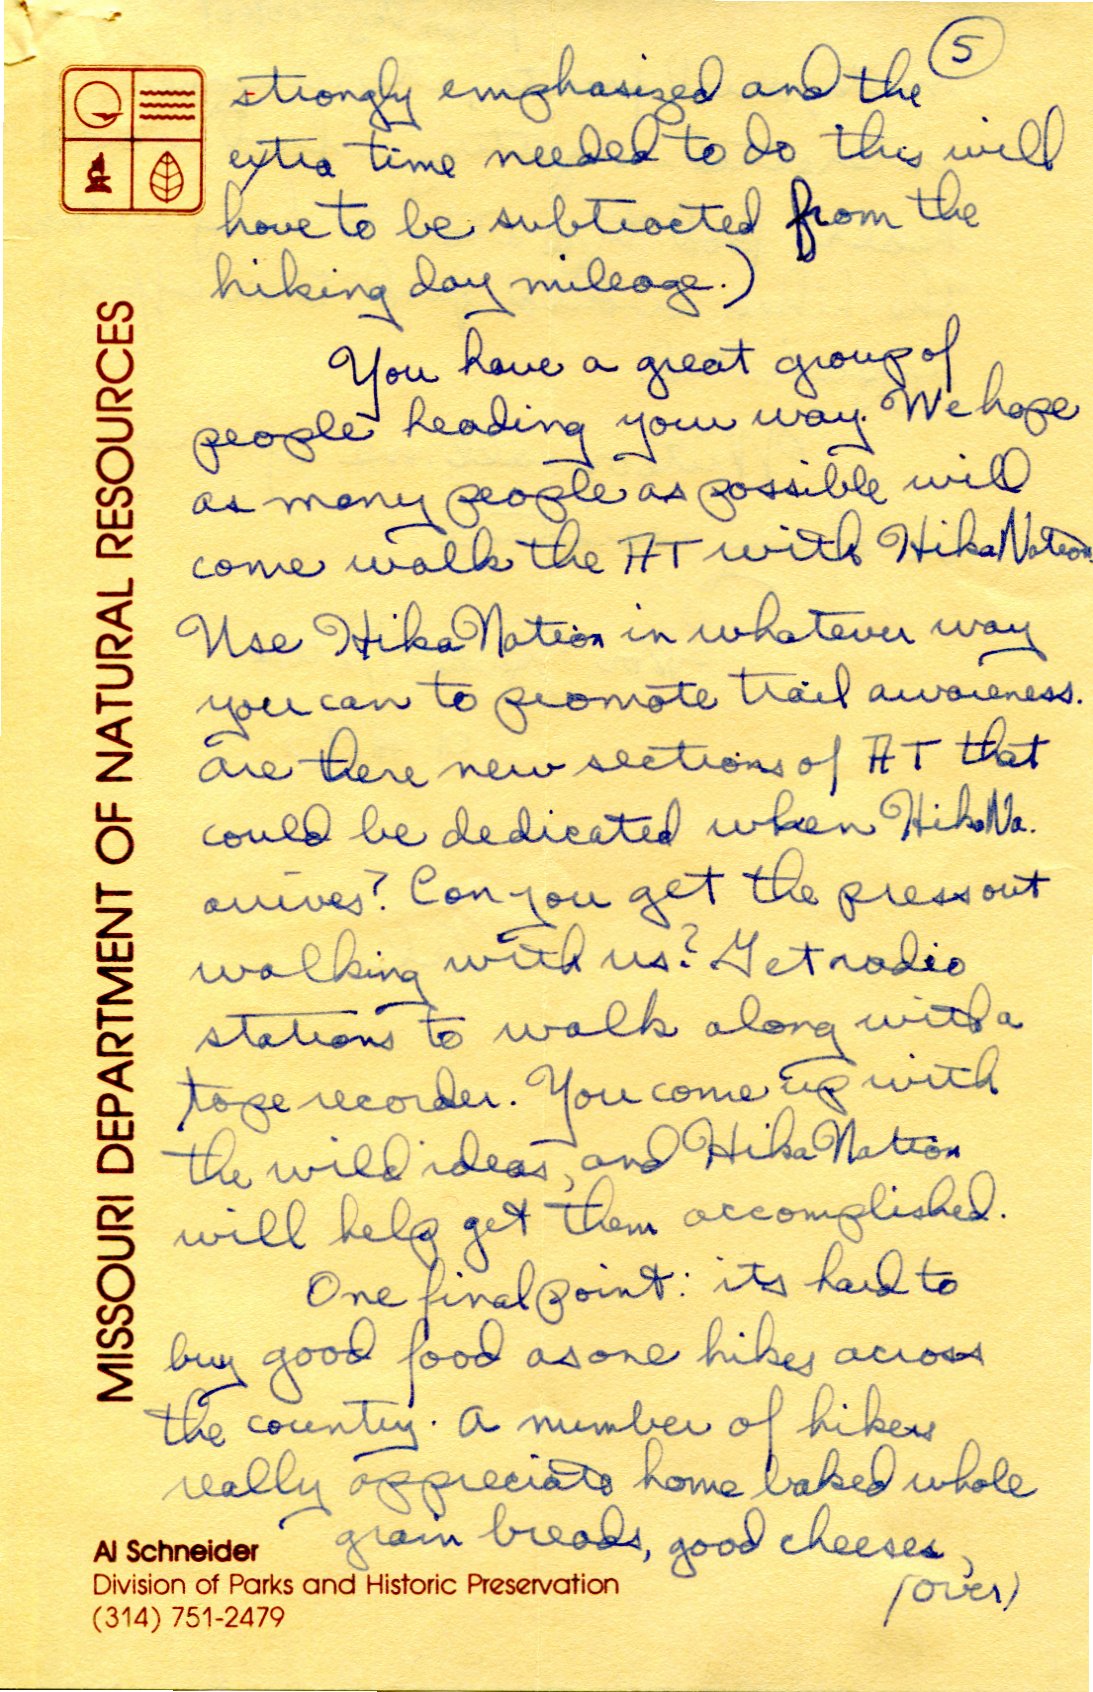 5
strongly emphasized and the
extra time needed to do this will
have to be subtracted from the
hiking day mileage.)
You have a great group of
people heading your way. We hope
as many people as possible will
come walk the AT with HikaNation.
Use HikaNation in whatever way
you can to promote trail awareness.
Are there new sections of AT that
could be dedicated when HikaNa.
arrives? Can you get the press out
walking with us? Get radio
stations to walk along with a
tape recorder. You come up with
the wild ideas, and HikaNation
will help get them accomplished.
One final point: its hard to
buy good food as one hikes across
the country. A number of hikers
really appreciate home baked whole
grain breads, good cheeses,
(over)
MISSOURI DEPARTMENT OF NATURAL RESOURCES
Al Schneider
Division of Parks and Historic Preservation
(314) 751-2479